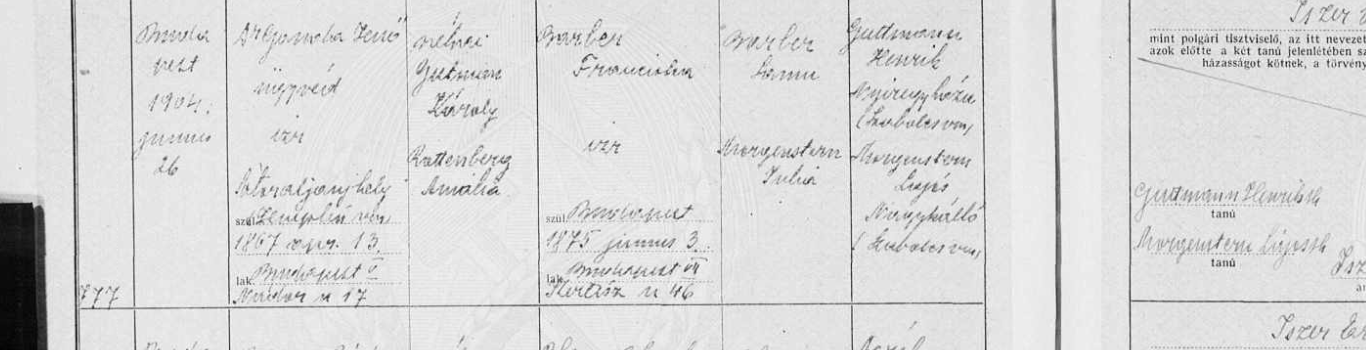 Buda
pest
1904.
junius
26
877
Dr Gonda Jenő
ügyvéd
izr
Sátoraljaujhely
szül. Zemplén vm
1867 apr. 13.
lak. Budapest V
Nádor u 17
néhai
Gutman
Károly
Rottenberg
Amália
Barber
Franciska
izr
szül. Budapest
1875 junius 3.
lak. Budapest VII
Kertész u 46
Barber
Morgenstern
Julia
Guttmann
Henrik
Nyiregyháza
(Szabolcs vm)
Morgenstern
Lajos
Nagykálló
(Szabolcs vm)
Iszer
mint polgári tisztviselő, az itt nevezet
azok előtte a két tanú jelenlétében sz
házasságot kötnek, a törvény
Guttmann Henrik sk
tanú
Morgenstern Lajos sk
tanú
Isz
Iszer Er